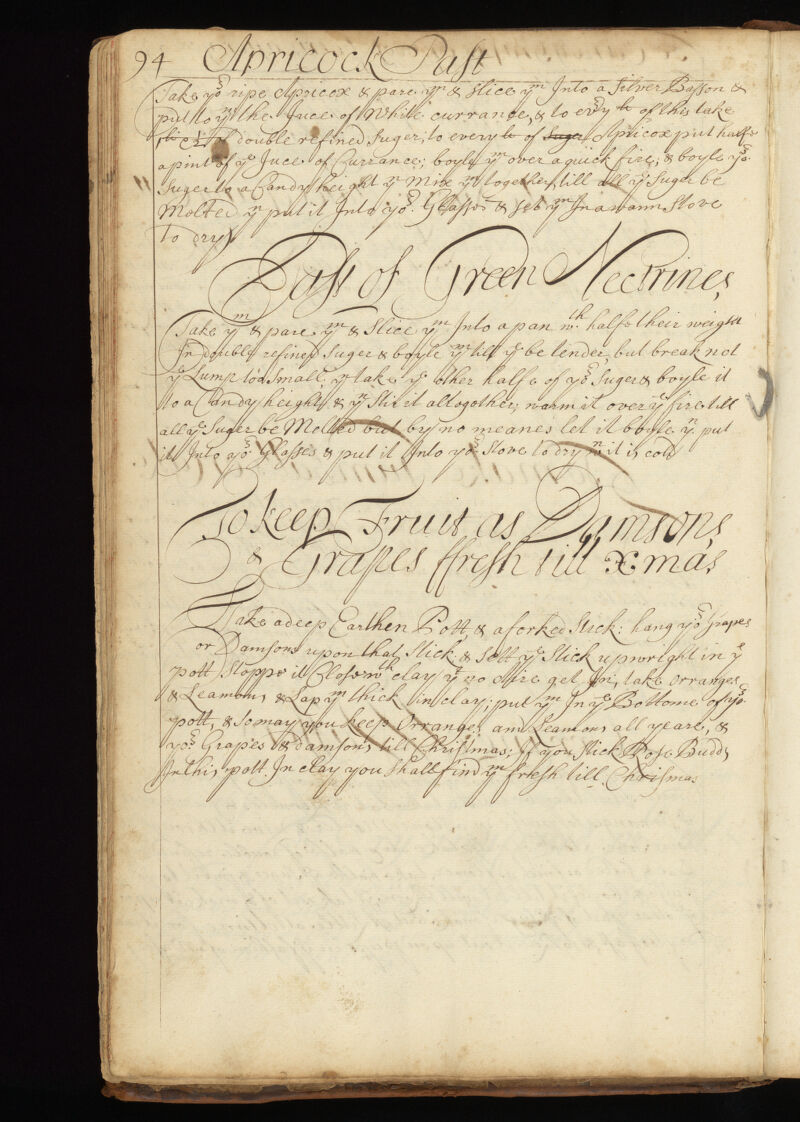 94 Apricock Past
Take yor ripe Apricox & pare ym & slice ym Into a Silver Basson &
put to ym the Juce of White currance, & to evry lb of this take
double refined Suger, to every lb of Suger Apricox put halfe
a pint of ye Juce of Currance; boyle ym over a quick fire, & boyle yor
Suger to a Candy height yn Mixe ym together, till all ye Suger be
Molted yn put it Into yor Glasses & set ym In a warm Stove
To dry
Past of Green Nectrines
Take ym & pare ym & Slice ym Into a pan wth halfe their weight
In double refined Suger & boyle ym till ye be tender, but break not
ye Lump too small, yn take ye other halfe of yor Suger & boyle it
to a Candy height & yn Stir it altogother; warm it over ye fire till
all ye Suger be Molted but by no meanes let it boyle yn put
it Into yor Glasses & put it Into yor Stove to dry wn it is cold
To keep Fruit as Damsons
& Grapes ffresh till Xmas
Take a deep Earthen Pott, & a forked Stick: hang yor Grapes
or Damsons upon that Stick; & Sett ye Stick upwright in ye
pott Stoppe it Close wth clay yt no Aire get In; take orranges
& Leamons & Lap ym thick in clay; put ym In ye Bottome of yor
pott, & so may you keep Orranges and Leamons all yeare, &
yor Grapes & Damsons till Christmas; if you stick Rose Budds
In this pott In clay you shall find ym fresh till Chrismas